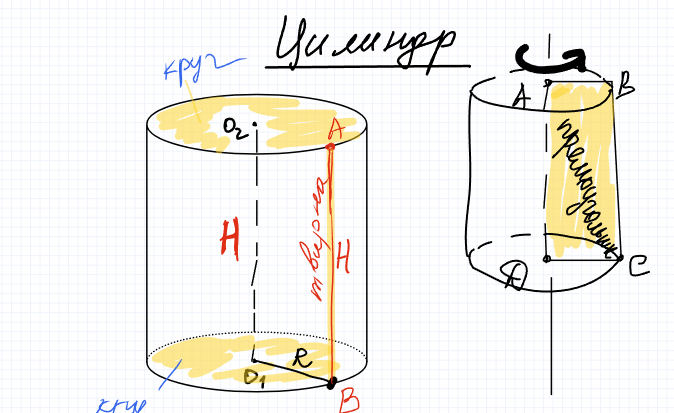 Циліндр
круг
O₂
A
H
твірна
H
R
O₁
B
круг
A
B
прямокутник
D
C